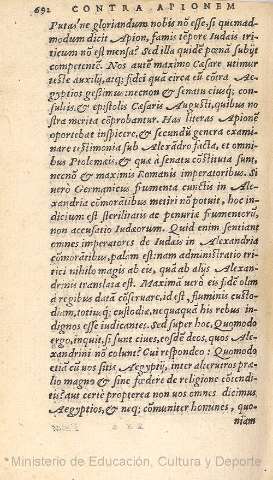 692 CONTRA APIONEM
Putas ne gloriandum nobis nō esse, si quemad-
modum dicit Apion, famis tēpore Iudæis tri-
ticum nō est mensū? Sed illa quidē pœnā subijt
competentē. Nos autē maximo Cæsare utimur
teste auxilij, atq; fidei quā circa eū cōtra Ae-
gyptios gessimus: necnon & senatu eiusq; con-
sultis, & epistolis Cæsaris Augusti, quibus no
stra merita cōprobantur. Has literas Apionē
oportebat inspicere, & secundū genera examina
nare testimonia sub Alexādro facta, et omni-
bus Ptolemæis, & quæ à senatu cōstituta sunt,
necnō & maximis Romanis imperatoribus. Si
uerò Germanicus frumenta cunctis in Ale-
xandria cōmorātibus metiri nō potuit, hoc in-
dicium est sterilitatis ac penuriæ frumentorū,
non accusatio Iudæorum. Quid enim sentiant
omnes imperatores de Iudæis in Alexandria
cōmorātibus, palam est: nam administratio tri-
tici nihilo magis ab eis, quā ab alijs Alexan-
drinis translata est. Maximā uerò eis fidē olim
à regibus datā cōseruare, id est, fluminis custo-
diam, totiusq; custodiæ, nequaquā his rebus in-
dignos esse iudicantes. Sed super hoc, Quomodo
ergo, inquit, si sunt ciues, eosdē deos, quos Ale-
xandrini nō colunt? Cui respondeo: Quomodo
etiā cū uos sitis Aegyptij, inter alterutros præ-
lio magno & sine fœdere de religione cōtendi-
tis? aut certe propterea non uos omnes dicimus
Aegyptios, & neq; cōmuniter homines, quo-
niam
Ministerio de Educación, Cultura y Deporte